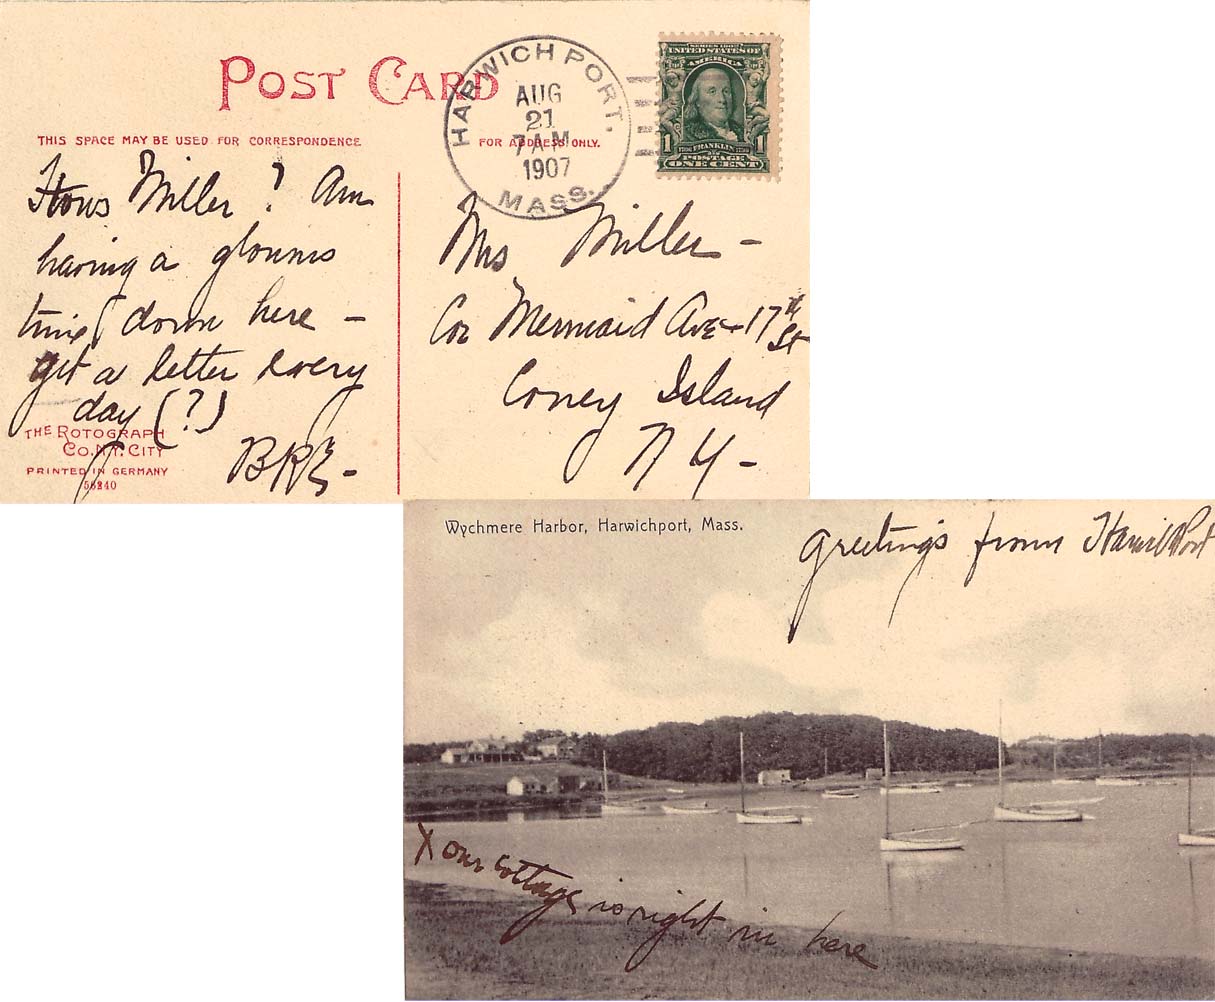 POST CARD
THIS SPACE MAY BE USED FOR CORRESPONDENCE
FOR ADDRESS ONLY.
HARWICH PORT.
AUG
21
7 AM
1907
MASS.
SERIES 1902
UNITED STATES OF
AMERICA
1 FRANKLIN 1
POSTAGE
ONE CENT
Hows Miller? Am
having a glorious
time down here –
get a letter every
day (?)
BRE –
Mrs Miller –
Cor Mermaid Ave + 17th
St
Coney Island
N Y –
THE ROTOGRAPH
CO. N.Y. CITY
PRINTED IN GERMANY
Wychmere Harbor, Harwichport, Mass.
Greetings from Harwich Port
X our cottage is right in here